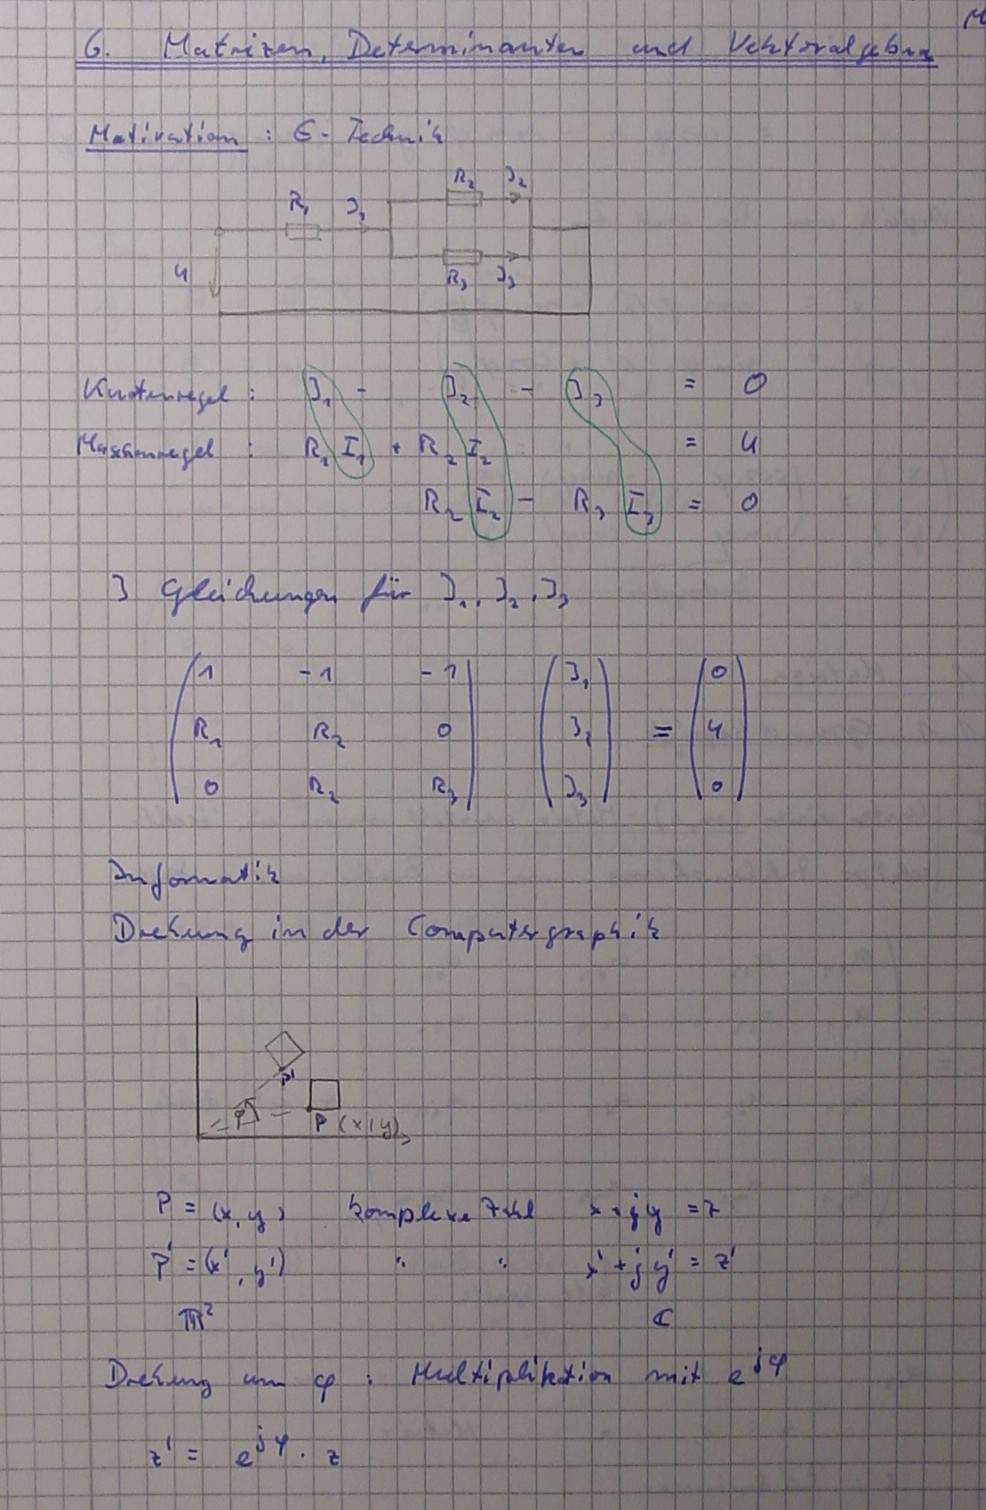 M
6. Matrizen, Determinanten und Vektoralgebra
Motivation : E-Technik
R₁ I₁ R₂ I₂
U R₃ I₃
Knotenregel : I₁ - I₂ - I₃ = 0
Maschenregel : R₁ I₁ + R₂ I₂ = U
R₂ I₂ - R₃ I₃ = 0
3 Gleichungen für I₁, I₂, I₃
1 -1 -1 I₁ 0
R₁ R₂ 0 I₂ = U
0 R₂ R₃ I₃ 0
Informatik
Drehung in der Computergraphik
P'
φ P (x|y)
P = (x, y) komplexe Zahl x + jy = z
P' = (x', y') " " x' + jy' = z'
ℝ² ℂ
Drehung um φ : Multiplikation mit e^jφ
z' = e^jφ · z